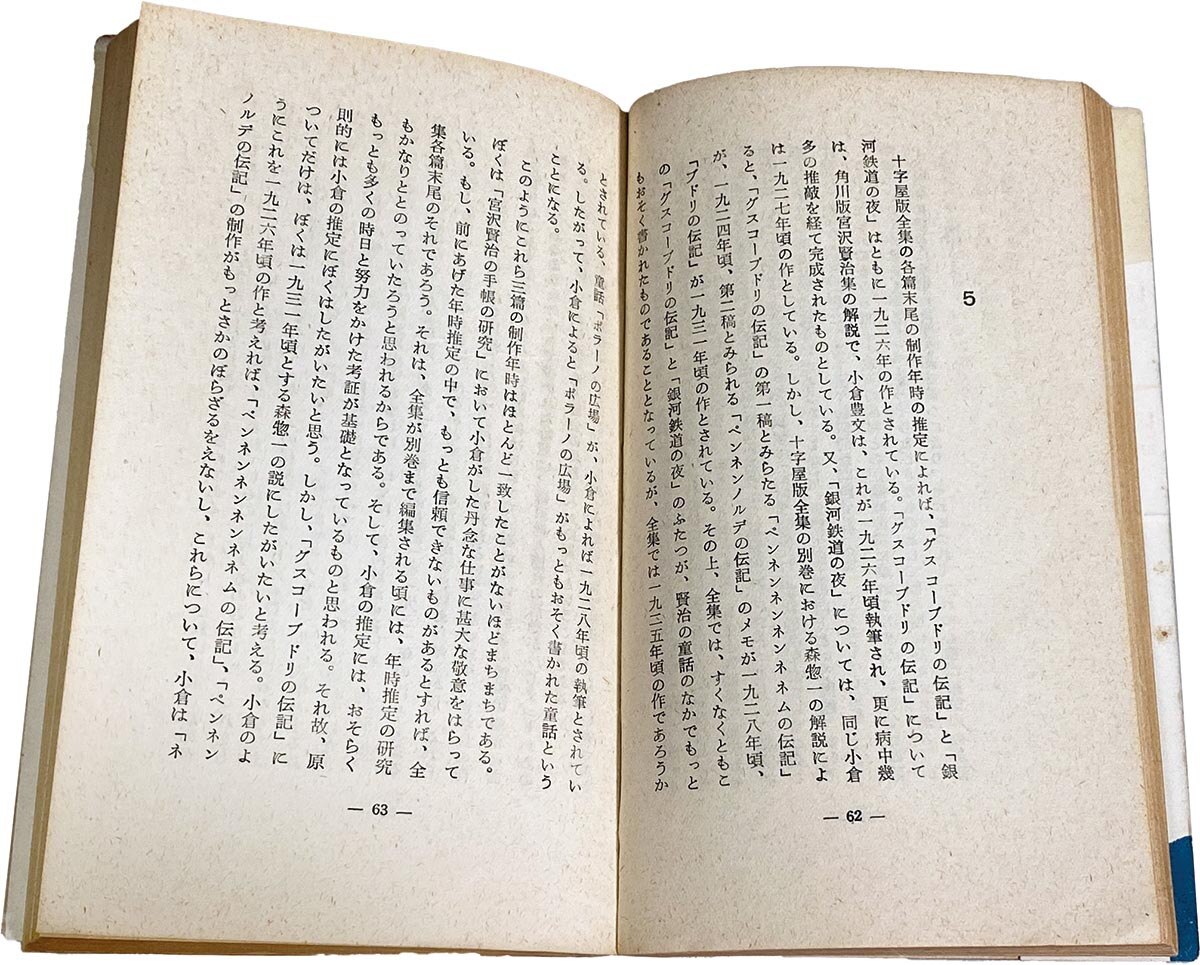 5
十字屋版全集の各篇末尾の制作年時の推定によれば、「グスコーブドリの伝記」と「銀
河鉄道の夜」はともに一九二六年の作とされている。「グスコーブドリの伝記」について
は、角川版宮沢賢治集の解説で、小倉豊文は、これが一九二六年頃執筆され、更に病中幾
多の推敲を経て完成されたものとしている。又、「銀河鉄道の夜」については、同じ小倉
は一九二七年頃の作としている。しかし、十字屋版全集の別巻における森惣一の解説によ
ると、「グスコーブドリの伝記」の第一稿とみらたる「ペンネンネンネンネネムの伝記」
が、一九二四年頃、第二稿とみられる「ペンネンノルデの伝記」のメモが一九二八年頃、
「ブドリの伝記」が一九三一年頃の作とされている。その上、全集では、すくなくともこ
の「グスコーブドリの伝記」と「銀河鉄道の夜」のふたつが、賢治の童話のなかでもっと
もおそく書かれたものであることとなっているが、全集では一九二五年頃の作であろうか
— 62 —
とされている、童話「ポラーノの広場」が、小倉によれば一九二八年頃の執筆とされてい
る。したがって、小倉によると「ポラーノの広場」がもっともおそく書かれた童話という
ことになる。
このようにこれら三篇の制作年時はほとんど一致したことがないほどまちまちである。
ぼくは「宮沢賢治の手帳の研究」において小倉がした丹念な仕事に甚大な敬意をはらって
いる。もし、前にあげた年時推定の中で、もっとも信頼できないものがあるとすれば、全
集各篇末尾のそれであろう。それは、全集が別巻まで編集される頃には、年時推定の研究
もかなりととのっていたろうと思われるからである。そして、小倉の推定には、おそらく
もっとも多くの時日と努力をかけた考証が基礎となっているものと思われる。それ故、原
則的には小倉の推定にぼくはしたがいたいと思う。しかし、「グスコーブドリの伝記」に
ついてだけは、ぼくは一九三一年頃とする森惣一の説にしたがいたいと考える。小倉のよ
うにこれを一九二六年頃の作と考えれば、「ペンネンネンネンネネムの伝記」、「ペンネン
ノルデの伝記」の制作がもっとさかのぼらざるをえないし、これらについて、小倉は「ネ
— 63 —